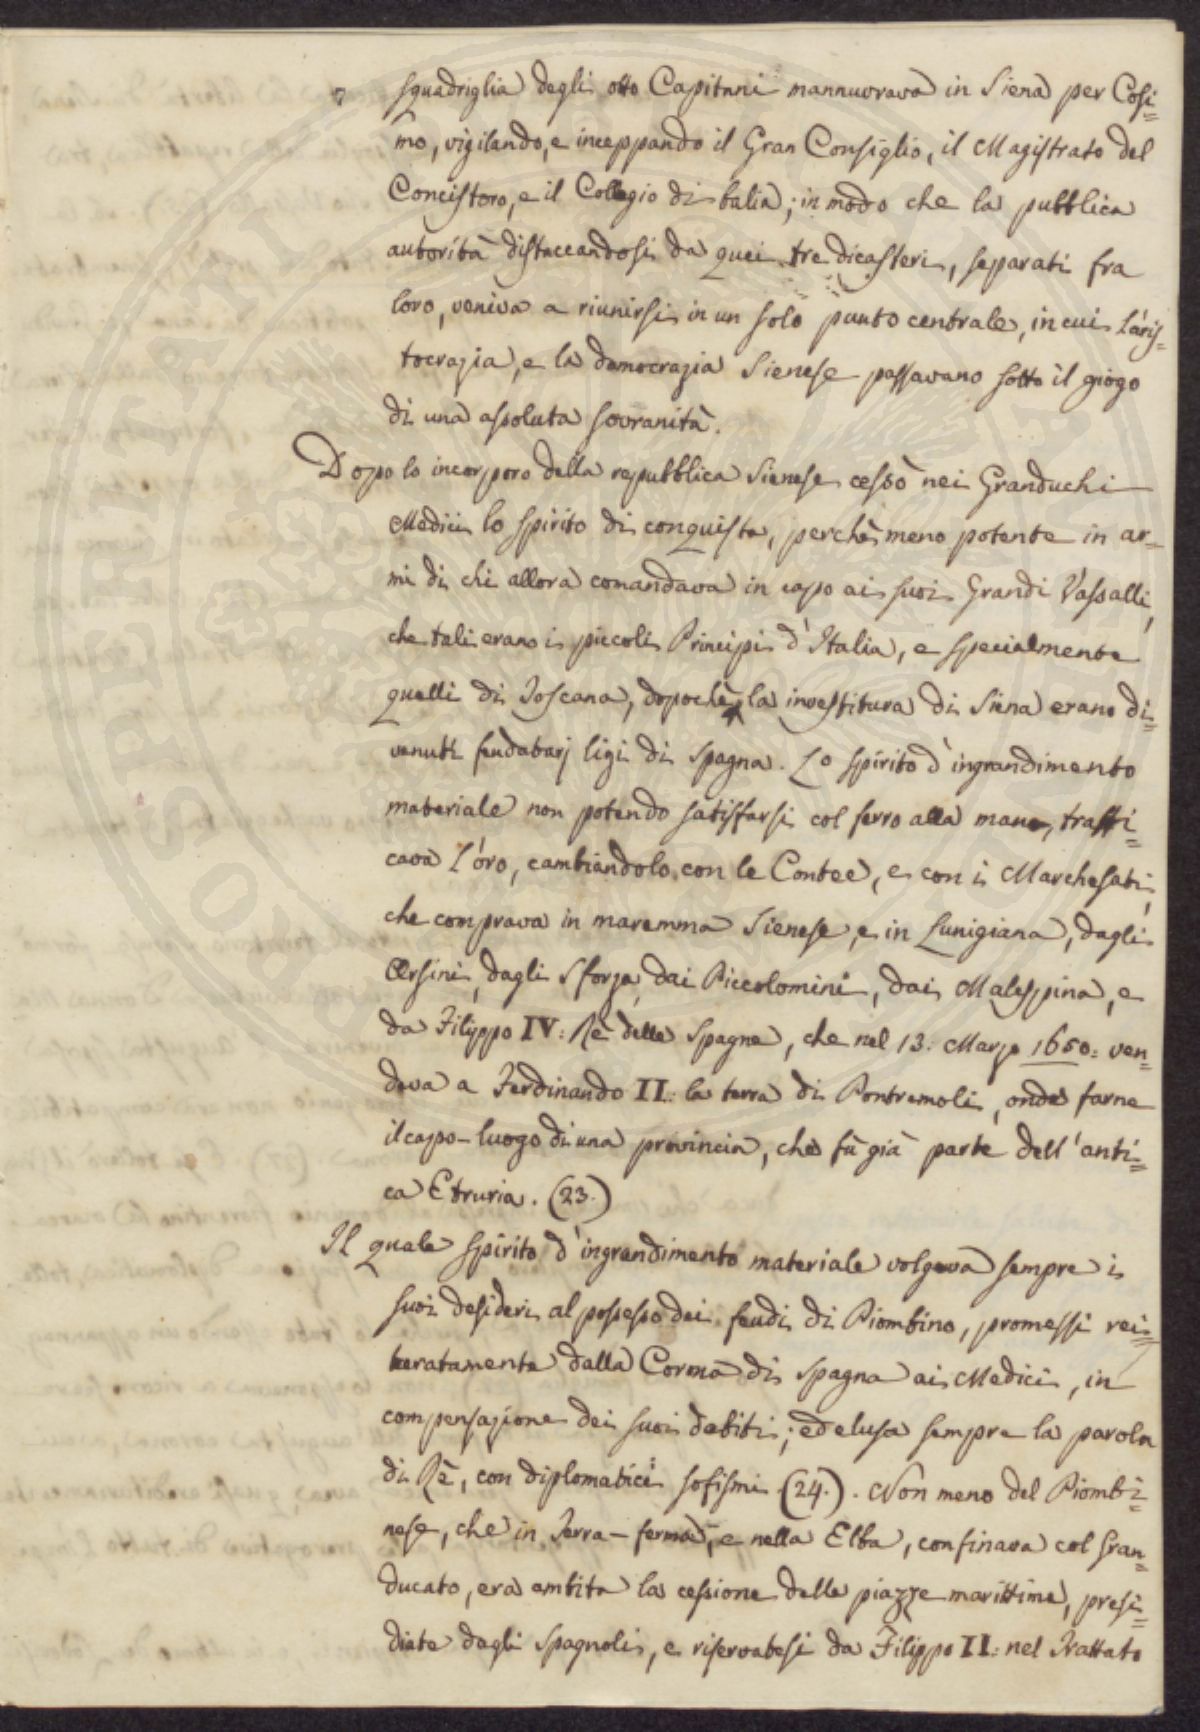 squadriglia degli otto Capitani mannuvrava in Siena per Cosi=
mo, vigilando, e inceppando il Gran Consiglio, il Magistrato del
Concistoro, e il Collegio di balia; in modo che la pubblica
autorità distaccandosi da quei tre dicasteri, separati fra
loro, veniva a riunirsi in un solo punto centrale, in cui l'aris=
tocrazia, e la democrazia Sienese passavano sotto il giogo
di una assoluta sovranità.
Dopo lo incorporo della repubblica Sienese cessò nei Granduchi
Medici lo spirito di conquista, perchè meno potente in ar=
mi di chi allora comandava in capo ai suoi Grandi Vassalli,
che tali erano i piccoli Principi d'Italia, e specialmente
quelli di Toscana, dopochè la investitura di Siena erano di=
venuti feudatarj ligi di Spagna. Lo spirito d'ingrandimento
materiale non potendo satisfarsi col ferro alla mano, traffi=
cava l'oro, cambiandolo con le Contee, e con i Marchesati,
che comprava in maremma Sienese, e in Lunigiana, dagli
Orsini, dagli Sforza, dai Piccolomini, dai Malespina, e
da Filippo IV: Rè delle Spagne, che nel 13. Marzo 1650: ven=
deva a Ferdinando II: la terra di Pontremoli, onde farne
il capo-luogo di una provincia, che fù già parte dell'anti=
ca Etruria. (23.)
Il quale spirito d'ingrandimento materiale volgeva sempre i
suoi desideri al possesso dei feudi di Piombino, promessi rei=
teratamente dalla Corona di Spagna ai Medici, in
compensazione dei suoi debiti; ed elusa sempre la parola
di Rè, con diplomatici sofismi (24.). Non meno del Piombi=
nese, che in Terra-ferma, e nella Elba, confinava col Gran=
ducato, era ambita la cessione delle piazze marittime, presi=
diate dagli Spagnoli, e riservatesi da Filippo II: nel Trattato
PROSPERITATI